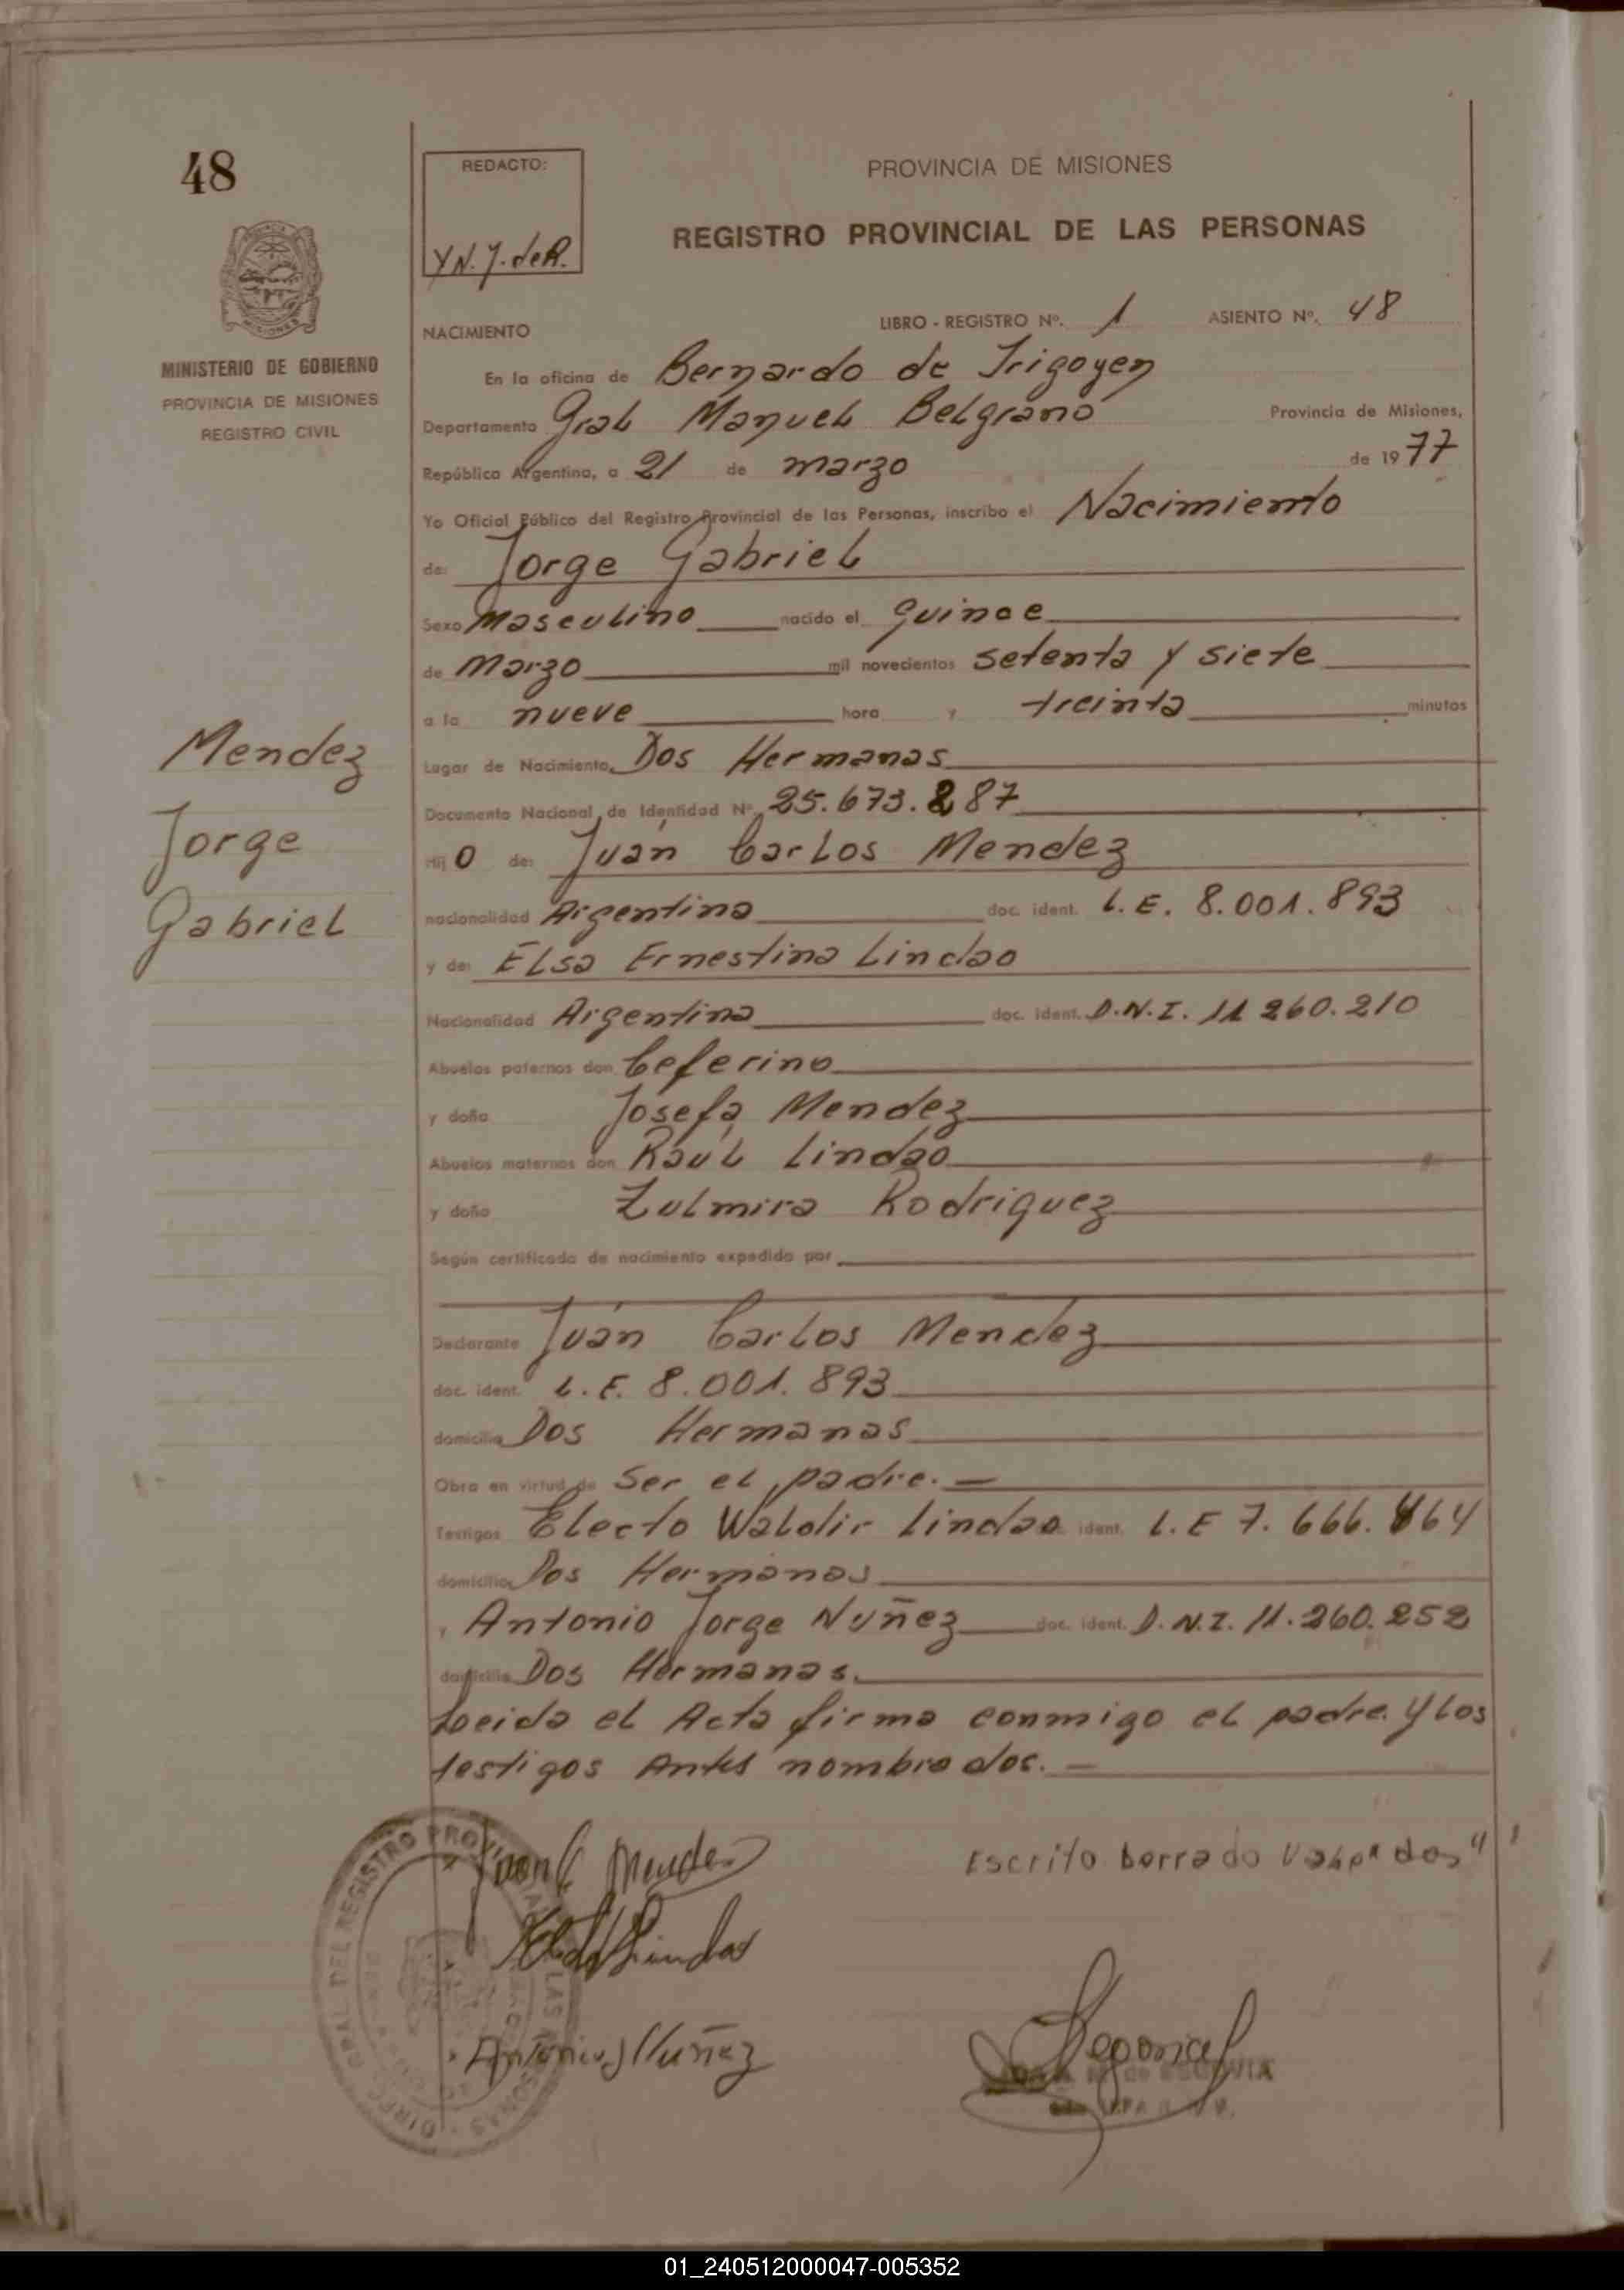 48
REDACTO:
Y N. J. de R.
PROVINCIA DE MISIONES
REGISTRO PROVINCIAL DE LAS PERSONAS
MINISTERIO DE GOBIERNO
PROVINCIA DE MISIONES
REGISTRO CIVIL
NACIMIENTO LIBRO - REGISTRO Nº. 1 ASIENTO Nº. 48
En la oficina de Bernardo de Irigoyen
Departamento Gral Manuel Belgrano Provincia de Misiones,
República Argentina, a 21 de marzo de 1977
Yo Oficial Público del Registro Provincial de las Personas, inscribo el Nacimiento
de: Jorge Gabriel
Sexo Masculino nacido el Quince
de Marzo mil novecientos setenta y siete
a la nueve hora y treinta minutos
Mendez
Jorge
Gabriel
Lugar de Nacimiento Dos Hermanas
Documento Nacional de Identidad Nº 25.673.287
Hij o de: Juan Carlos Mendez
nacionalidad Argentina doc. ident. L.E. 8.001.893
y de: Elsa Ernestina Lindao
Nacionalidad Argentina doc. ident. D.N.I. 11 260.210
Abuelos paternos don Ceferino
y doña Josefa Mendez
Abuelos maternos don Raúl Lindao
y doña Zulmira Rodriguez
Según certificado de nacimiento expedido por
Declarante Juan Carlos Mendez
doc. ident. L.E. 8.001.893
domicilio Dos Hermanas
Obra en virtud de Ser el padre. —
Testigos Electo Waldir Lindao ident. L.E 7.666.464
domicilio Dos Hermanas
y Antonio Jorge Nuñez doc. ident. D.N.I. 11.260.252
domicilio Dos Hermanas.
Leida el Acta firma conmigo el padre y los
testigos Antes nombrados. —
Juan C Mendez
Escrito borrado
Lindao
Antonio J Nuñez
DIREC. GRAL DEL REGISTRO PROVINCIAL DE LAS PERSONAS
01_240512000047-005352